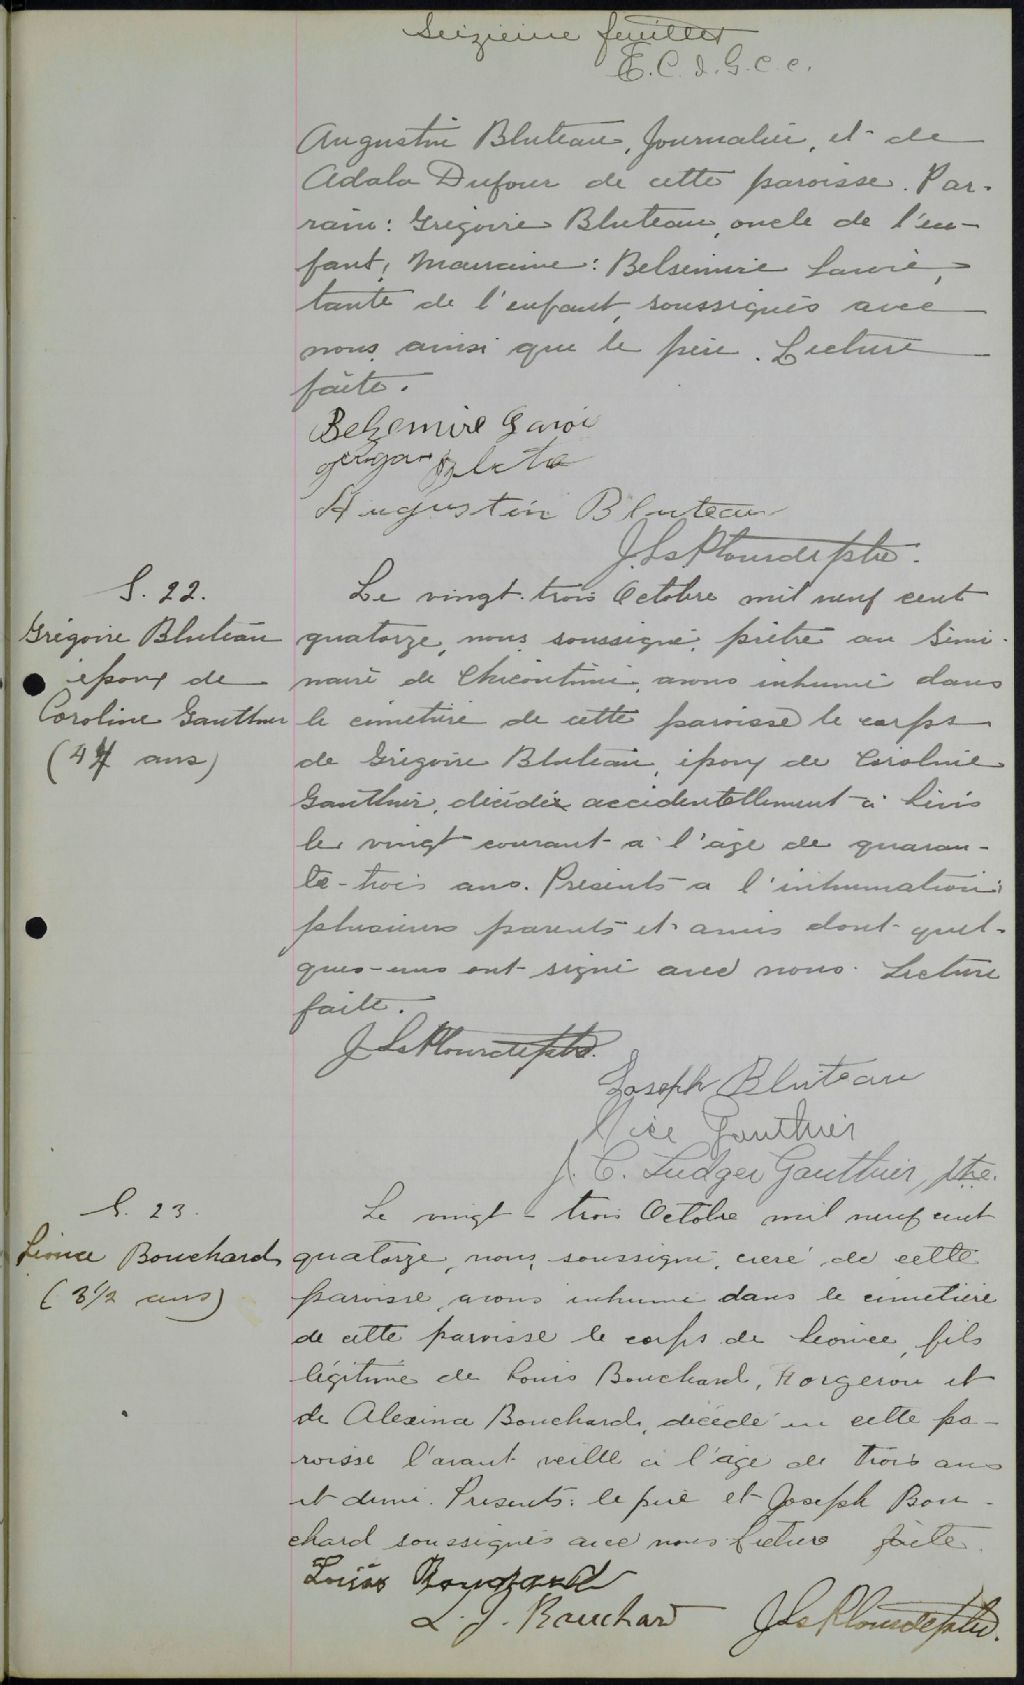 Seizième feuillet
T.C.I.G.C.C.
Augustin Bluteau, Journalier, et de
Adala Dufour de cette paroisse. Par-
rain: Grégoire Bluteau, oncle de l'en-
fant; Marraine: Belzemire Lavoie,
tante de l'enfant, soussignés avec
nous ainsi que le père. Lecture
faite.
Belzemire Lavoi
Augustin Bluteau
J. Ls. Plourde ptre.
S. 22.
Grégoire Bluteau
époux de
Caroline Gauthier
(44 ans)
Le vingt-trois Octobre mil neuf cent
quatorze, nous soussigné, prêtre au Sémi-
naire de Chicoutimi, avons inhumé dans
le cimetière de cette paroisse le corps
de Grégoire Bluteau, époux de Caroline
Gauthier, décédé accidentellement à Lévis
le vingt courant à l'âge de quaran-
te-trois ans. Présents à l'inhumation:
plusieurs parents et amis dont quel-
ques-uns ont signé avec nous. Lecture
faite.
J Ls Plourde ptre.
Joseph Bluteau
Gauthier
J. C. Ludger Gauthier, ptre.
S. 23.
Léonce Bouchard
(3 1/2 ans)
Le vingt-trois Octobre mil neuf cent
quatorze, nous, soussigné, curé de cette
paroisse, avons inhumé dans le cimetière
de cette paroisse le corps de Léonce, fils
légitime de Louis Bouchard, Forgeron et
de Alexina Bouchard, décédé en cette pa-
roisse l'avant veille à l'âge de trois ans
et demi. Présents: le père et Joseph Bou-
chard soussignés avec nous lecture faite.
Louis Bouchard
L. J. Bouchard
J Ls Plourde ptre.